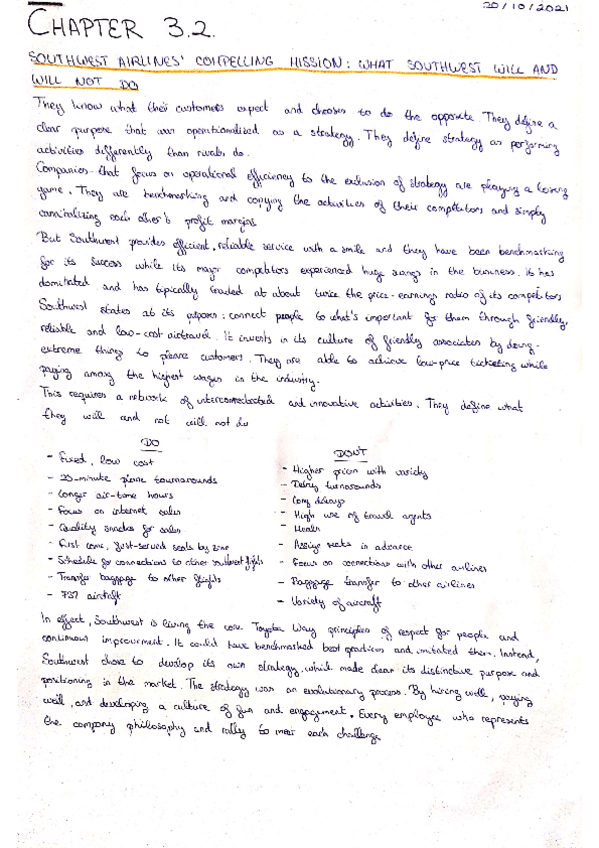 20/10/2021
CHAPTER 3.2.
SOUTHWEST AIRLINES' COMPELLING MISSION: WHAT SOUTHWEST WILL AND
WILL NOT DO
They know what their customers expect and chooses to do the opposite. They define a
clear purpose that was operationalized as a strategy. They define strategy as performing
activities differently than rivals do.
Companies that focus on operational efficiency to the exclusion of strategy are playing a losing
game. They are benchmarking and copying the activities of their competitors and simply
cannibalizing each other's profit margins
But Southwest provides efficient, reliable service with a smile and they have been benchmarking
for its success while its major competitors experienced huge swings in the business. It has
dominated and has typically traded at about twice the price-earning ratio of its competitors
Southwest states as its purpose: connect people to what's important for them through friendly,
reliable and low-cost airtravel. It invests in its culture of friendly associates by doing
extreme things to please customers. They are able to achieve low-price ticketing while
paying among the highest wages in the industry.
This requires a network of interconnected and innovative activities. They define what
they will and not will not do
DO
- Fixed, low cost
- 20-minute plane tournarounds
- Longer air-time hours
- Focus on internet sales
- Quality snacks for sales
- First come, first-served seats by zone
- Schedule for connections to other southwest flights
- Transfer baggage to other flights
- 737 aircraft
DON'T
- Higher prices with variety
- Delay turnarounds
- Long delays
- High use of travel agents
- Assign seats in advance
- Focus on connections with other airlines
- Baggage transfer to other airlines
- Variety of aircraft
In effect, Southwest is living the core Toyota Way principles of respect for people and
continuous improvement. It could have benchmarked best practices and imitated them. Instead,
Southwest chose to develop its own strategy, which made clear its distinctive purpose and
positioning in the market. The strategy was an evolutionary process. By hiring well, paying
well, and developing a culture of fun and engagement. Every employee who represents
the company philosophy and rally to meet each challenge